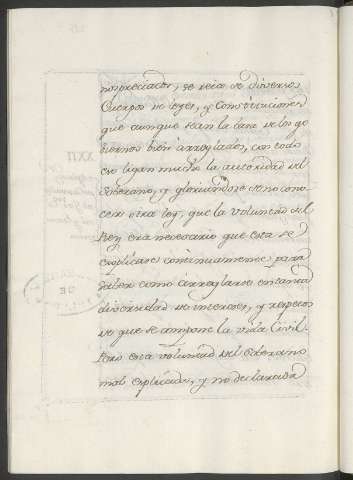 nospreciados, se reia de diversos
Cuerpos de leyes, y Constituciones
que aunque sean la basa de los go
biernos bien arreglados, con todo
eso ligan mucho la autoridad del
Soberano, y gloriandose de no cono
cer otra ley, que la voluntad del
Rey era necesario que esta se
explicase continuamente para
saber como arreglarse en tanta
diversidad de intereses, y respetos
de que se compone la vida Civil.
Pero esta voluntad del Soberano
mal explicada, y no declarada